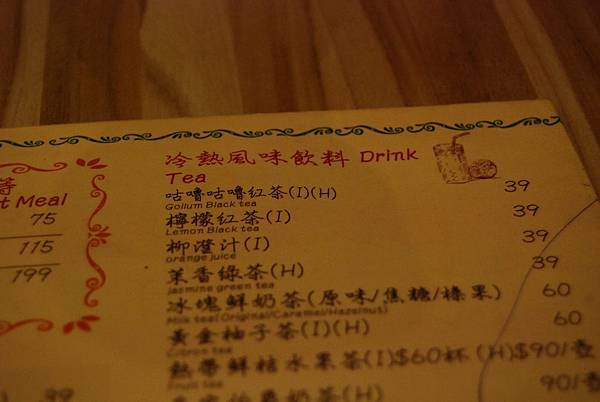 t Meal
75
115
199
39
冷熱風味飲料 Drink
Tea
咕嚕咕嚕紅茶(I)(H) 39
Gollum Black tea
檸檬红茶(I) 39
Lemon Black tea
柳澄汁(I) 39
orange juice
茉香綠茶(H) 39
jasmine green tea
冰塊鮮奶茶(原味/焦糖/榛果) 60
Milk tea(Original/Caramel/Hazelnut)
黃金柚子茶(I)(H) 60
Citron tea
熱帶鮮桔水果茶(I)$60杯(H)$90/壺
Fruit tea
奶茶(H) 90/壺